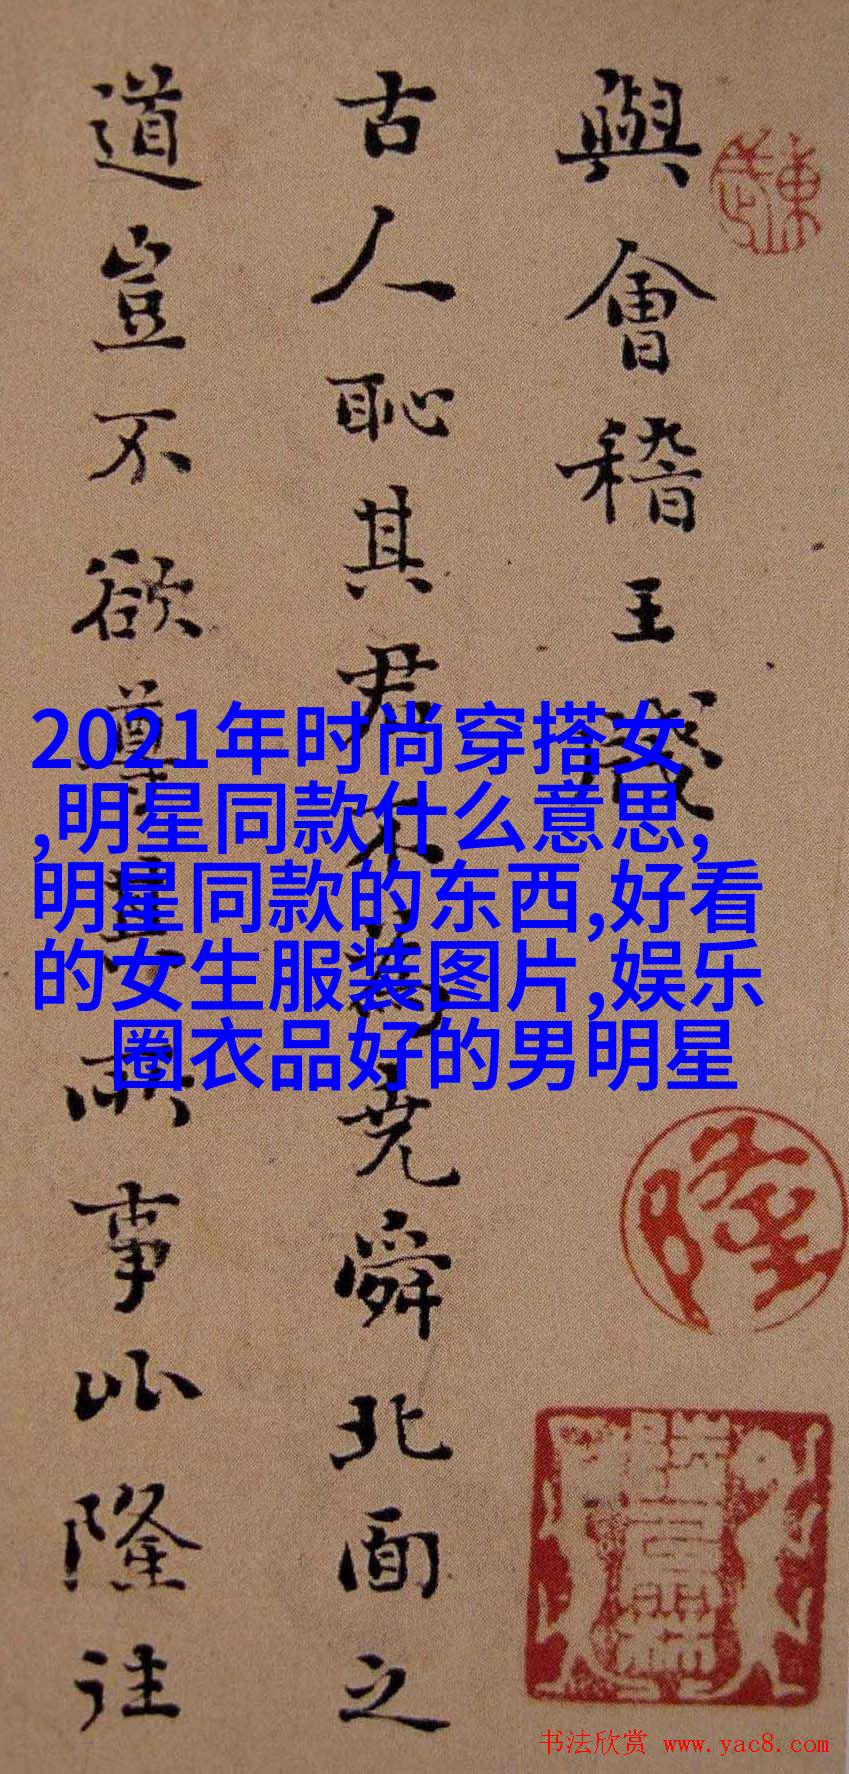 與會稽王牋
古人恥其君不為堯舜北面之
道豈不欲尊其所事比隆往
2021年时尚穿搭女
,明星同款什么意思,
明星同款的东西,好看
的女生服装图片,娱乐
圈衣品好的男明星
隆
书法欣赏 www.yac8.com